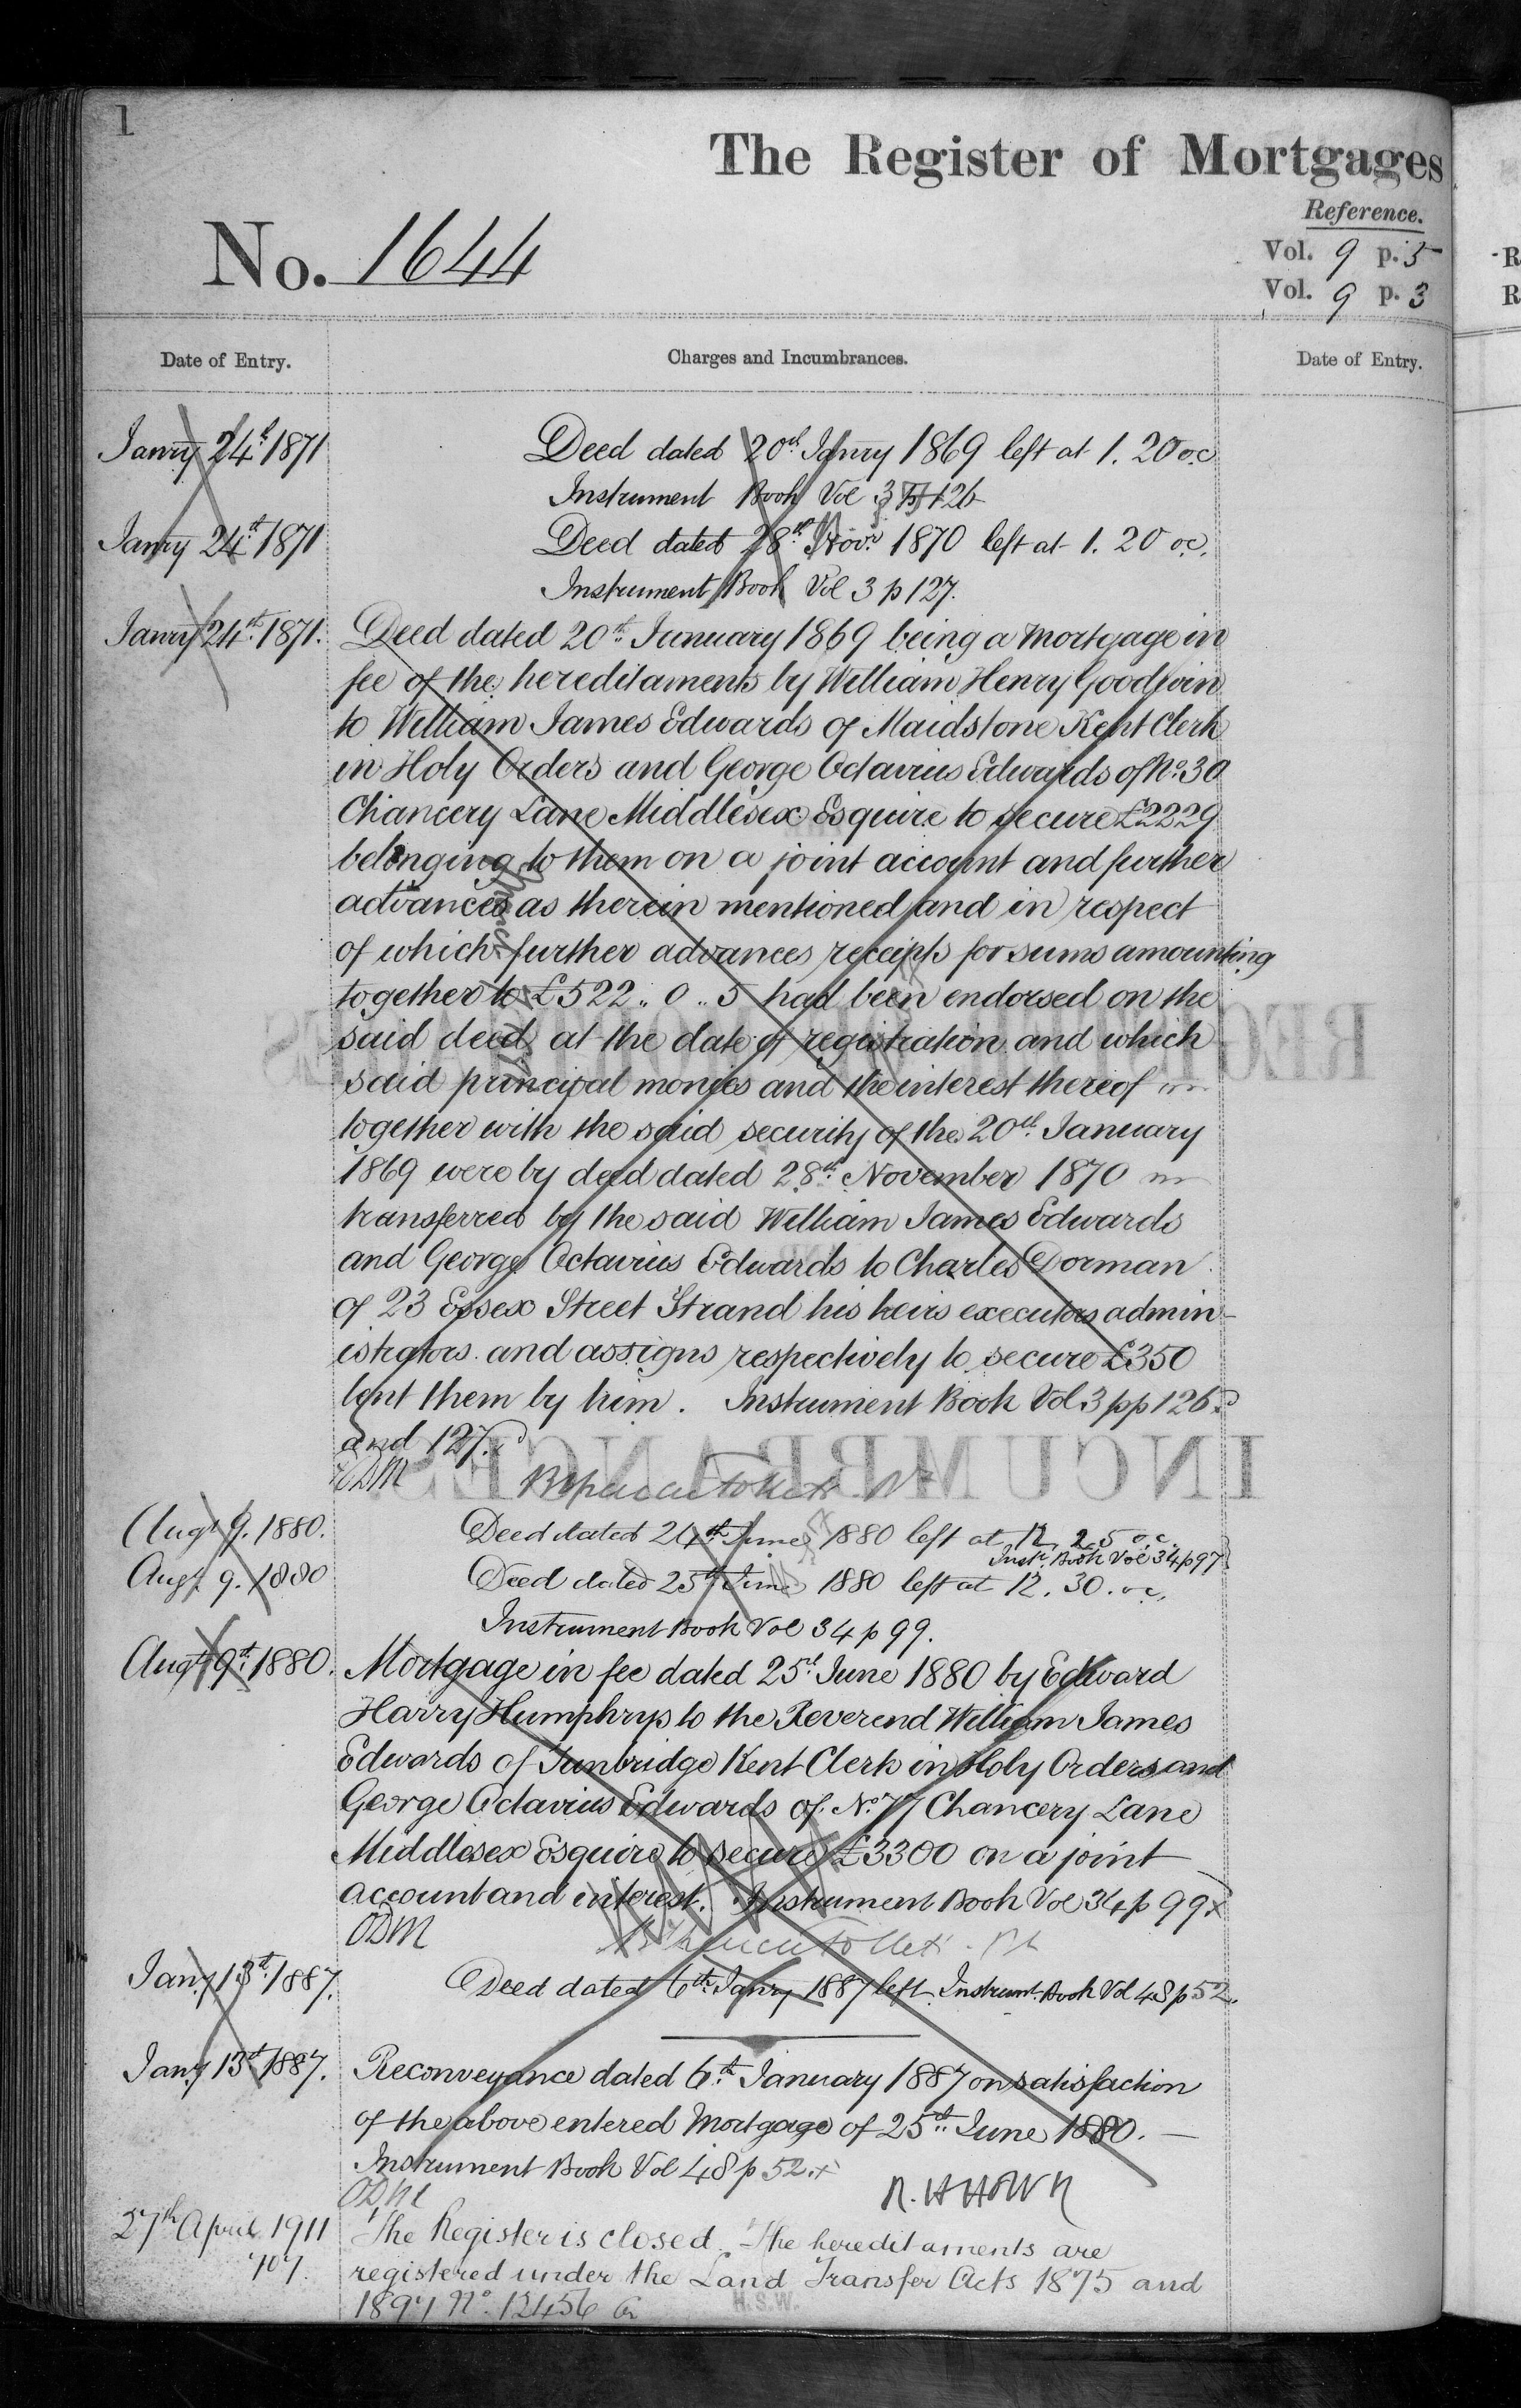 1
The Register of Mortgages
Reference.
No. 1644
Vol. 9 p. 5
Vol. 9 p. 3
Date of Entry.
Charges and Incumbrances.
Date of Entry.
Janry 24th 1871
Deed dated 20th Janry 1869 left at 1. 20 oc
Instrument Book Vol 3 p 126
Janry 24th 1871
Deed dated 28th Novr 1870 left at 1. 20 oc.
Instrument Book Vol 3 p 127.
Janry 24th 1871.
Deed dated 20th January 1869 being a Mortgage in
fee of the hereditaments by William Henry Goodwin
to William James Edwards of Maidstone Kent Clerk
in Holy Orders and George Octavius Edwards of No. 30
Chancery Lane Middlesex Esquire to secure £2229
belonging to them on a joint account and further
advances as therein mentioned and in respect
of which further advances receipts for sums amounting
together to £522 .. 0 .. 5 had been endorsed on the
said deed at the date of registration and which
said principal monies and the interest thereof
together with the said security of the 20th January
1869 were by deed dated 28th November 1870
transferred by the said William James Edwards
and George Octavius Edwards to Charles Dorman
of 23 Essex Street Strand his heirs executors admin-
istrators and assigns respectively to secure £350
lent them by him. Instrument Book Vol 3 pp 126
and 127.
ODM
Augt 9. 1880.
Deed dated 24th June 1880 left at 12. 25 o.c.
Instr. Book Vol 34 p 97
Augt 9. 1880
Deed dated 25th June 1880 left at 12. 30. oc.
Instrument Book Vol 34 p 99.
Augt 9th 1880.
Mortgage in fee dated 25th June 1880 by Edward
Harry Humphrys to the Reverend William James
Edwards of Tunbridge Kent Clerk in Holy Orders and
George Octavius Edwards of No. 77 Chancery Lane
Middlesex Esquire to secure £3300 on a joint
account and interest. Instrument Book Vol 34 p 99 x
ODM
Jany 13th 1887.
Deed dated 6th Janry 1887 left. Instrumt. Book Vol 48 p 52.
Jany 13th 1887.
Reconveyance dated 6th January 1887 on satisfaction
of the above entered Mortgage of 25th June 1880. —
Instrument Book Vol 48 p 52. x
ODM
27th April 1911
The Register is closed. The hereditaments are
registered under the Land Transfer Acts 1875 and
1897 No. 12456
H.S.W.